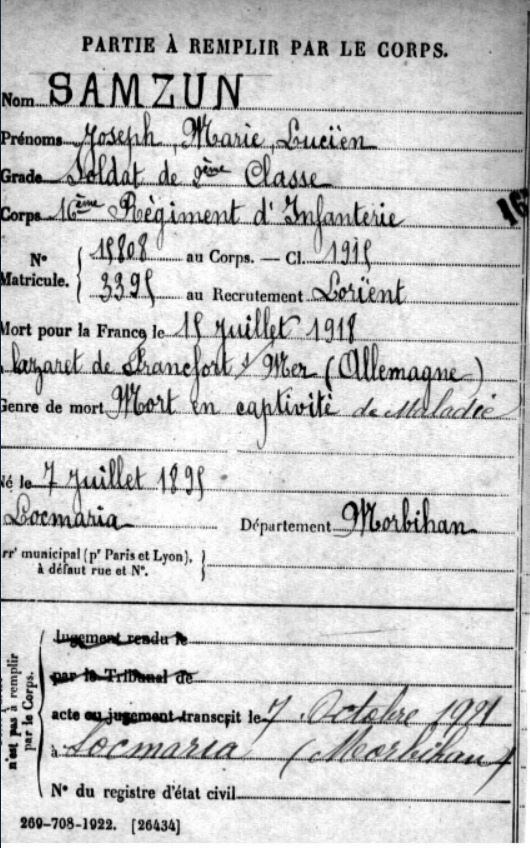 PARTIE À REMPLIR PAR LE CORPS.
Nom SAMZUN
Prénoms Joseph, Marie, Lucien
Grade Soldat de 2ème Classe
Corps 16ème Règiment d'Infanterie
N° Matricule. { 15808 au Corps. — Cl. 1915
3395 au Recrutement Lorient
Mort pour la France le 15 Juillet 1918
lazaret de Francfort s/ Mer (Allemagne)
Genre de mort Mort en captivité de Maladie
Né le 7 Juillet 1895
Locmaria Département Morbihan
arrt municipal (pr Paris et Lyon), }
à défaut rue et N°.
Jugement rendu le
par le Tribunal de
acte ou jugement transcrit le 7 Octobre 1921
à Locmaria (Morbihan)
n'est pas à remplir
par le Corps.
N° du registre d'état civil
269-708-1922. [26434]